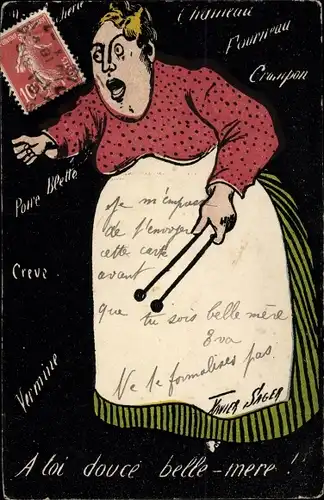 Chameau
Fourneau
Crampon
Poire Blette
Creve
Vermine
Je m'empresse
de t'envoyer
cette carte
avant
que tu sois belle mère
Eva
Ne te formalises pas
XAVIER SAGER
A toi douce belle-mere !